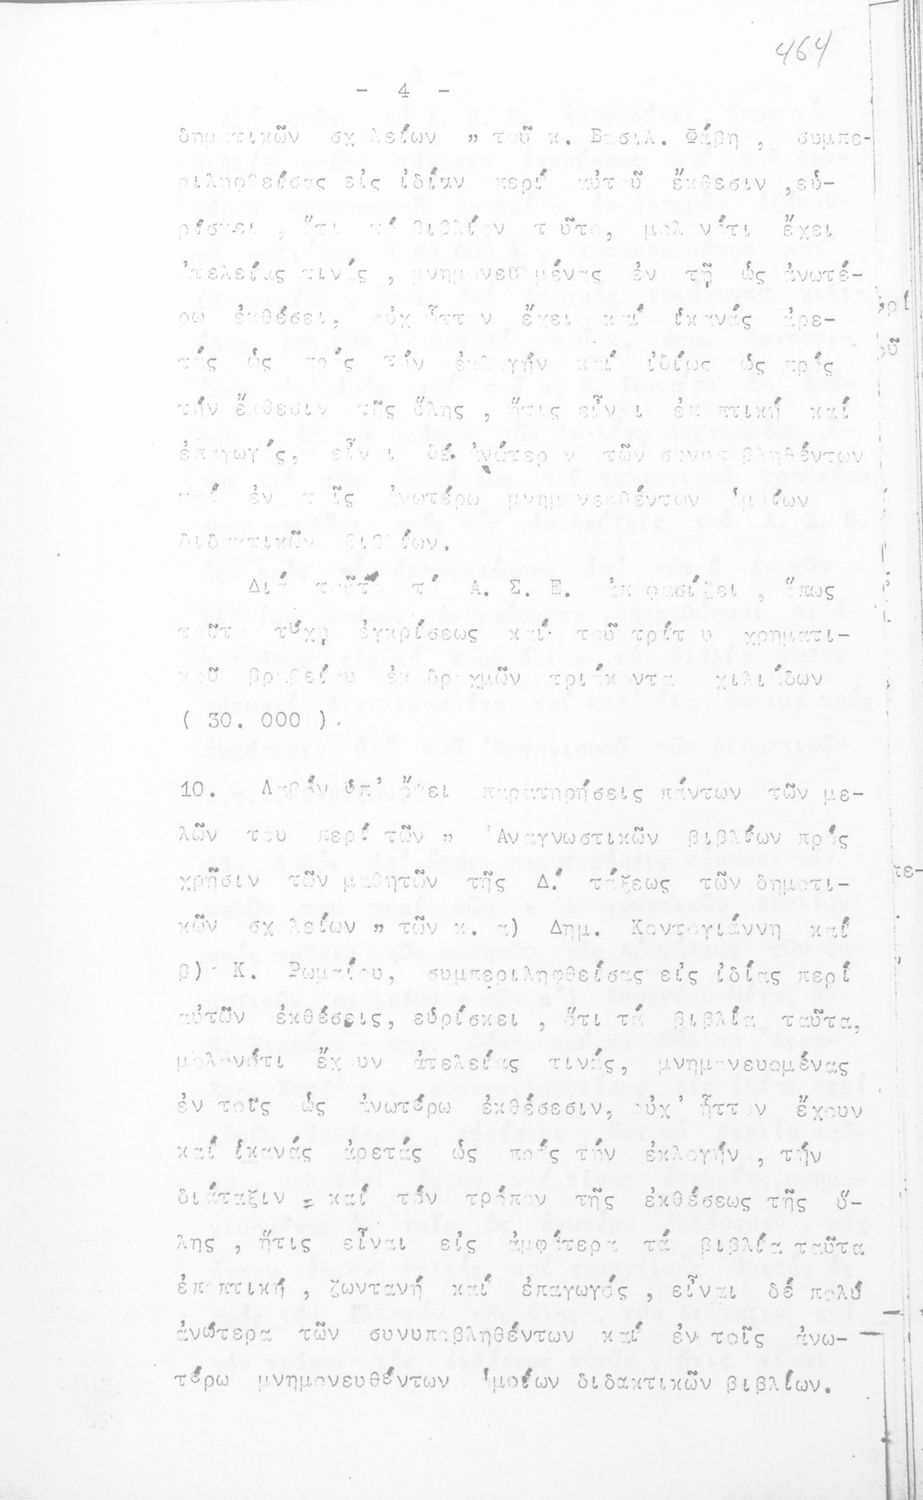 464
- 4 -
δημοτικῶν σχολείων „ τοῦ κ. Βασιλ. Φάβη , συμπε-
ριληφθείσας εἰς ἰδίαν περί αὐτοῦ ἔκθεσιν ,εὑ-
ρίσκει , ὅτι τό βιβλίον τοῦτο, μολονότι ἔχει
ἀτελείας τινάς , μνημονευομένας ἐν τῇ ὡς ἀνωτέ-
ρω ἐκθέσει, οὐχ ἧττον ἔχει καί ἱκανάς ἀρε-
τάς ὡς πρός τήν ἐκλογήν καί ἰδίως ὡς πρός
τήν ἔκθεσιν τῆς ὕλης , ἥτις εἶναι ἐποπτική καί
ἐπαγωγός, εἶναι δέ ἀνώτερον τῶν συνυποβληθέντων
καί ἐν τοῖς ἀνωτέρω μνημονευθέντων ὁμοίων
διδακτικῶν βιβλίων.
Διά τοῦτο τό Α. Σ. Ε. ἀποφασίζει , ὅπως
τοῦτο τύχῃ ἐγκρίσεως καί τοῦ τρίτου χρηματι-
κοῦ βραβείου ἐκ δραχμῶν τριάκοντα χιλιάδων
( 30. 000 ).
10. Λαβόν ὑπ' ὄψει παρατηρήσεις πάντων τῶν με-
λῶν του περί τῶν „ Ἀναγνωστικῶν βιβλίων πρός
χρῆσιν τῶν μαθητῶν τῆς Δ΄ τάξεως τῶν δημοτι-
κῶν σχολείων „ τῶν κ. α) Δημ. Κοντογιάννη καί
β) Κ. Ρωμαίου, συμπεριληφθείσας εἰς ἰδίας περί
αὐτῶν ἐκθέσεις, εὑρίσκει , ὅτι τά βιβλία ταῦτα,
μολονότι ἔχουν ἀτελείας τινάς, μνημονευομένας
ἐν τοῖς ὡς ἀνωτέρω ἐκθέσεσιν, οὐχ' ἧττον ἔχουν
καί ἱκανάς ἀρετάς ὡς πρός τήν ἐκλογήν , τήν
διάταξιν καί τόν τρόπον τῆς ἐκθέσεως τῆς ὕ-
λης , ἥτις εἶναι εἰς ἀμφότερα τά βιβλία ταῦτα
ἐποπτική , ζωντανή καί ἐπαγωγός , εἶναι δέ πολύ
ἀνώτερα τῶν συνυποβληθέντων καί ἐν τοῖς ἀνω-
τέρω μνημονευθέντων ὁμοίων διδακτικῶν βιβλίων.